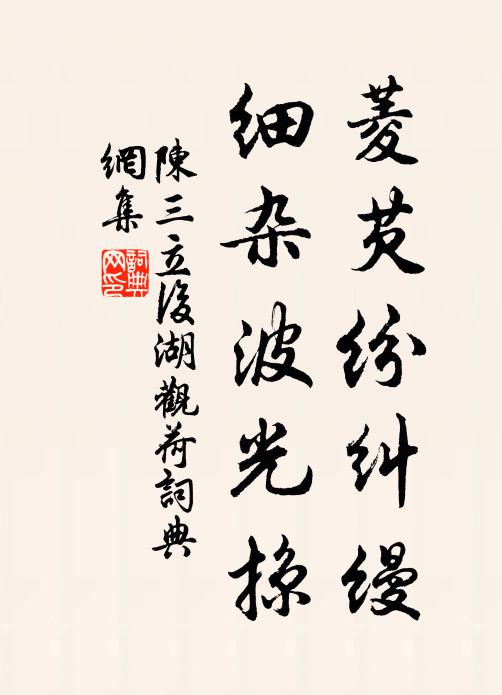 菱芡纷糾缦
细杂波光掠
陳三立後湖觀荷詞典
網集
詞典網印